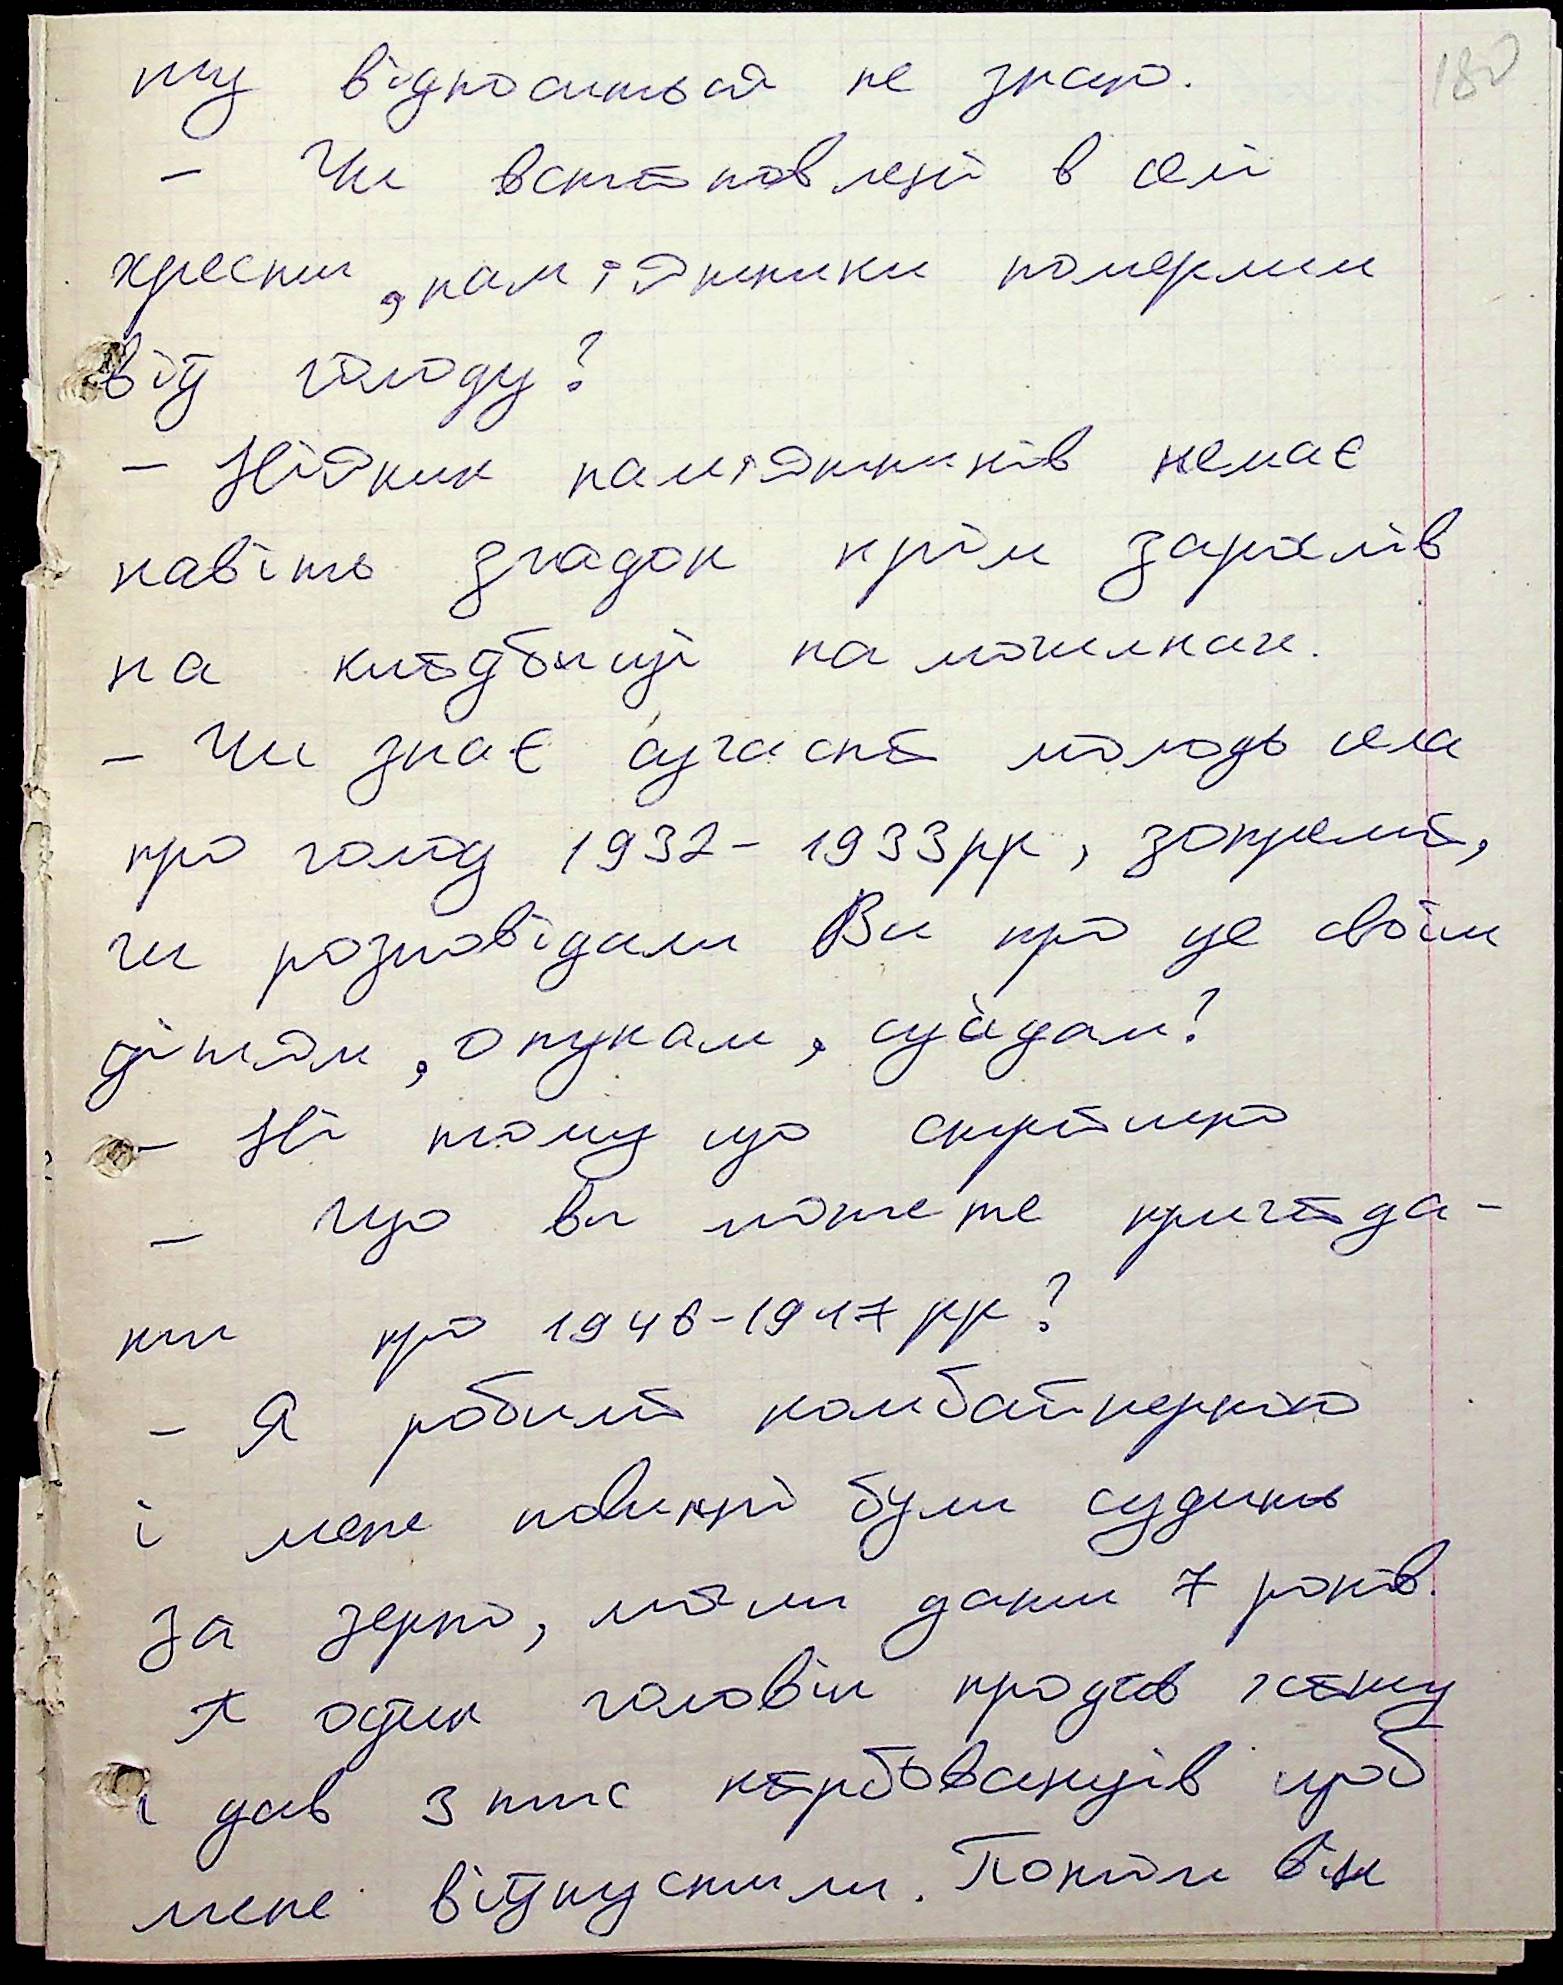 180
му відноситься не знаю.
- Чи встановлені в селі
хрести, пам'ятники померлим
від голоду?
- Ніяких пам'ятників немає
навіть згадок крім заріхлів
на кладбищі на могилках.
- Чи знає сучасна молодь села
про голод 1932-1933рр, зокрема,
чи розповідали Ви про це своїм
дітям, онукам, сусідам?
- Ні тому що скрітно
- Що ви можете пригада-
ти про 1946-1947 рр?
- Я робила комбайнеркою
і мене повинні були судить
за зерно, могли дати 7 років.
А один чоловік продав хату
і дав 3 тис карбованців щоб
мене відпустили. Потім він